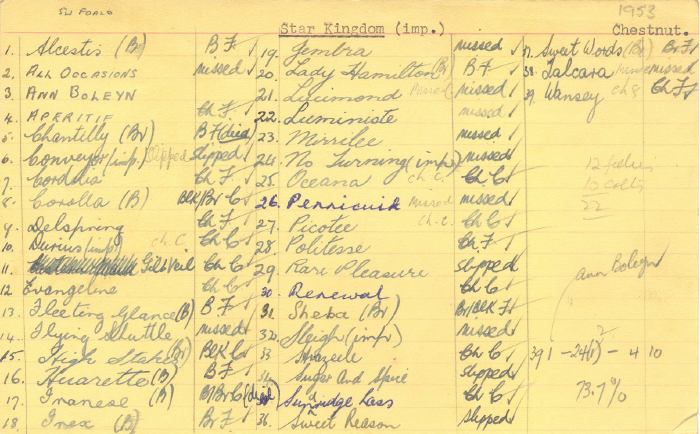 SW FOALS
1953
Star Kingdom (imp.)
Chestnut.
1. Alcestis (Br) B F
2. ALL OCCASIONS missed
3. ANN BOLEYN
4. APERITIF Ch F
5. Chantilly (Br) B F (died)
6. Conveyor (imp.) Slipped slipped
7. Cordelia Ch F
8. Corolla (B) BLK/Br C
9. Delspring Ch F
10. Durius (imp) ch. C. Ch C
11. Gilt Veil Ch C
12 Evangeline Ch C
13. Fleeting Glance (B) B F
14. Flying Shuttle missed
15. High Stakes (Br) BLK C
16. Huarette (B) B F
17. Iranese (B) B/Br C (died)
18. Inex (B)
19. Gembra missed
20. Lady Hamilton (B) B F
21. missed missed
22. Luministe missed
23. Mirrilee missed
24. No Turning (imp) missed
25. Oceana ch. C. Ch C
26. Pennicuik missed missed
27. Picotee Ch. C. Ch C
28. Politesse Ch. F
29. Rare Pleasure slipped
30. Renewal Ch C
31. Sheba (Br) Br/BLK F
32. Sleigh (imp) missed
33 Ch C
34 Sugar And Spice slipped
35 Sunridge Lass Ch C
36. Sweet Reason slipped
37. Sweet Words (B) Br F
38. Talcara missed
39. Wansey ch f Ch F
12 fillies
10 colts
22
Ann Boleyn
2
39 1 - 24(1) - 4 10
73.7%